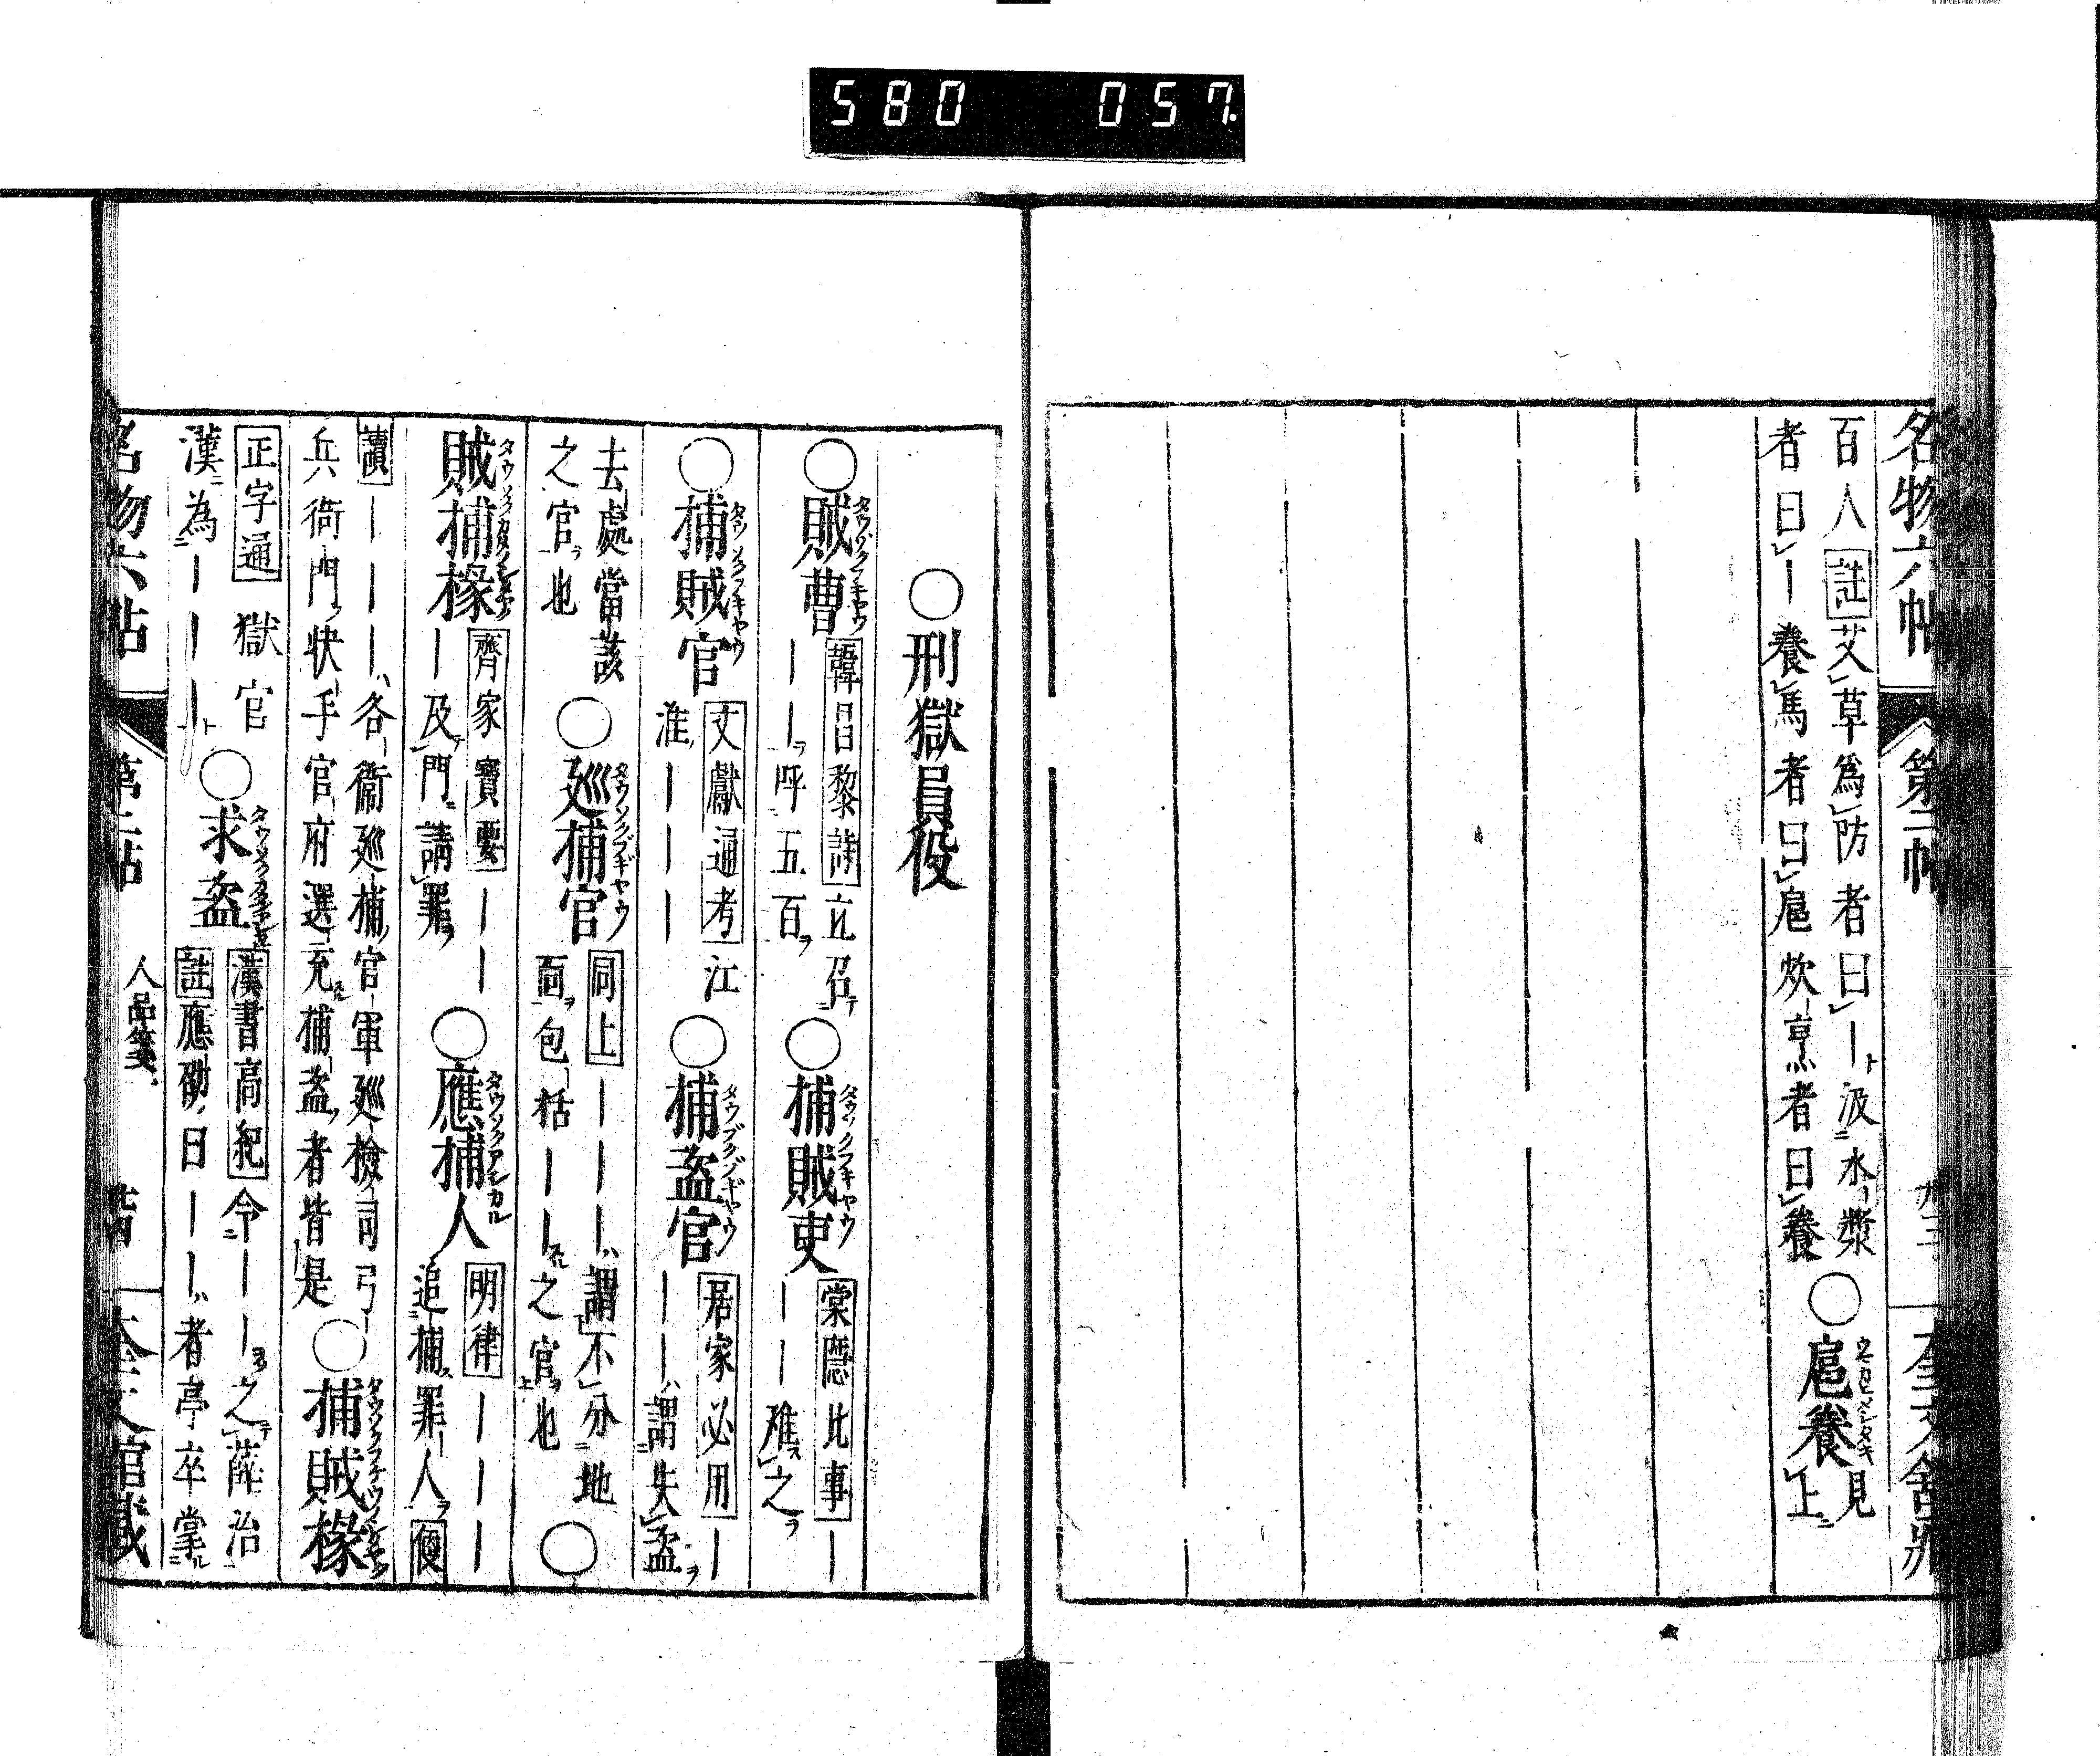 580 057
名物六帖 第二帖 奎文舘蔵
百人註艾草爲防者曰｜汲水漿
者曰｜養馬者曰扈炊烹者曰養
○扈養見
上
○刑獄員役
○賊曹 韓昌黎詩 立召
｜｜呼五百
○捕賊吏 棠隱比事 ｜
｜｜難之
○捕賊官 文獻通考 江
淮｜｜｜
○捕盜官 居家必用 ｜
｜｜謂失盜
去處當該
之官也
○巡捕官 同上 ｜｜｜謂不分地
面包括｜｜之官也
○
賊捕掾 齊家寶要 ｜｜
｜及門請罪
○應捕人 明律 ｜｜｜
追捕罪人
讀｜｜｜各衞巡捕官軍巡檢司弓
兵衙門快手官府選充捕盜者皆是
○捕賊掾
正字通 獄官
漢為｜｜｜
○求盜 漢書高紀 令｜｜之薛治
註應劭曰｜｜者亭卒掌
名物六帖 第二帖 人品箋 奎文舘藏